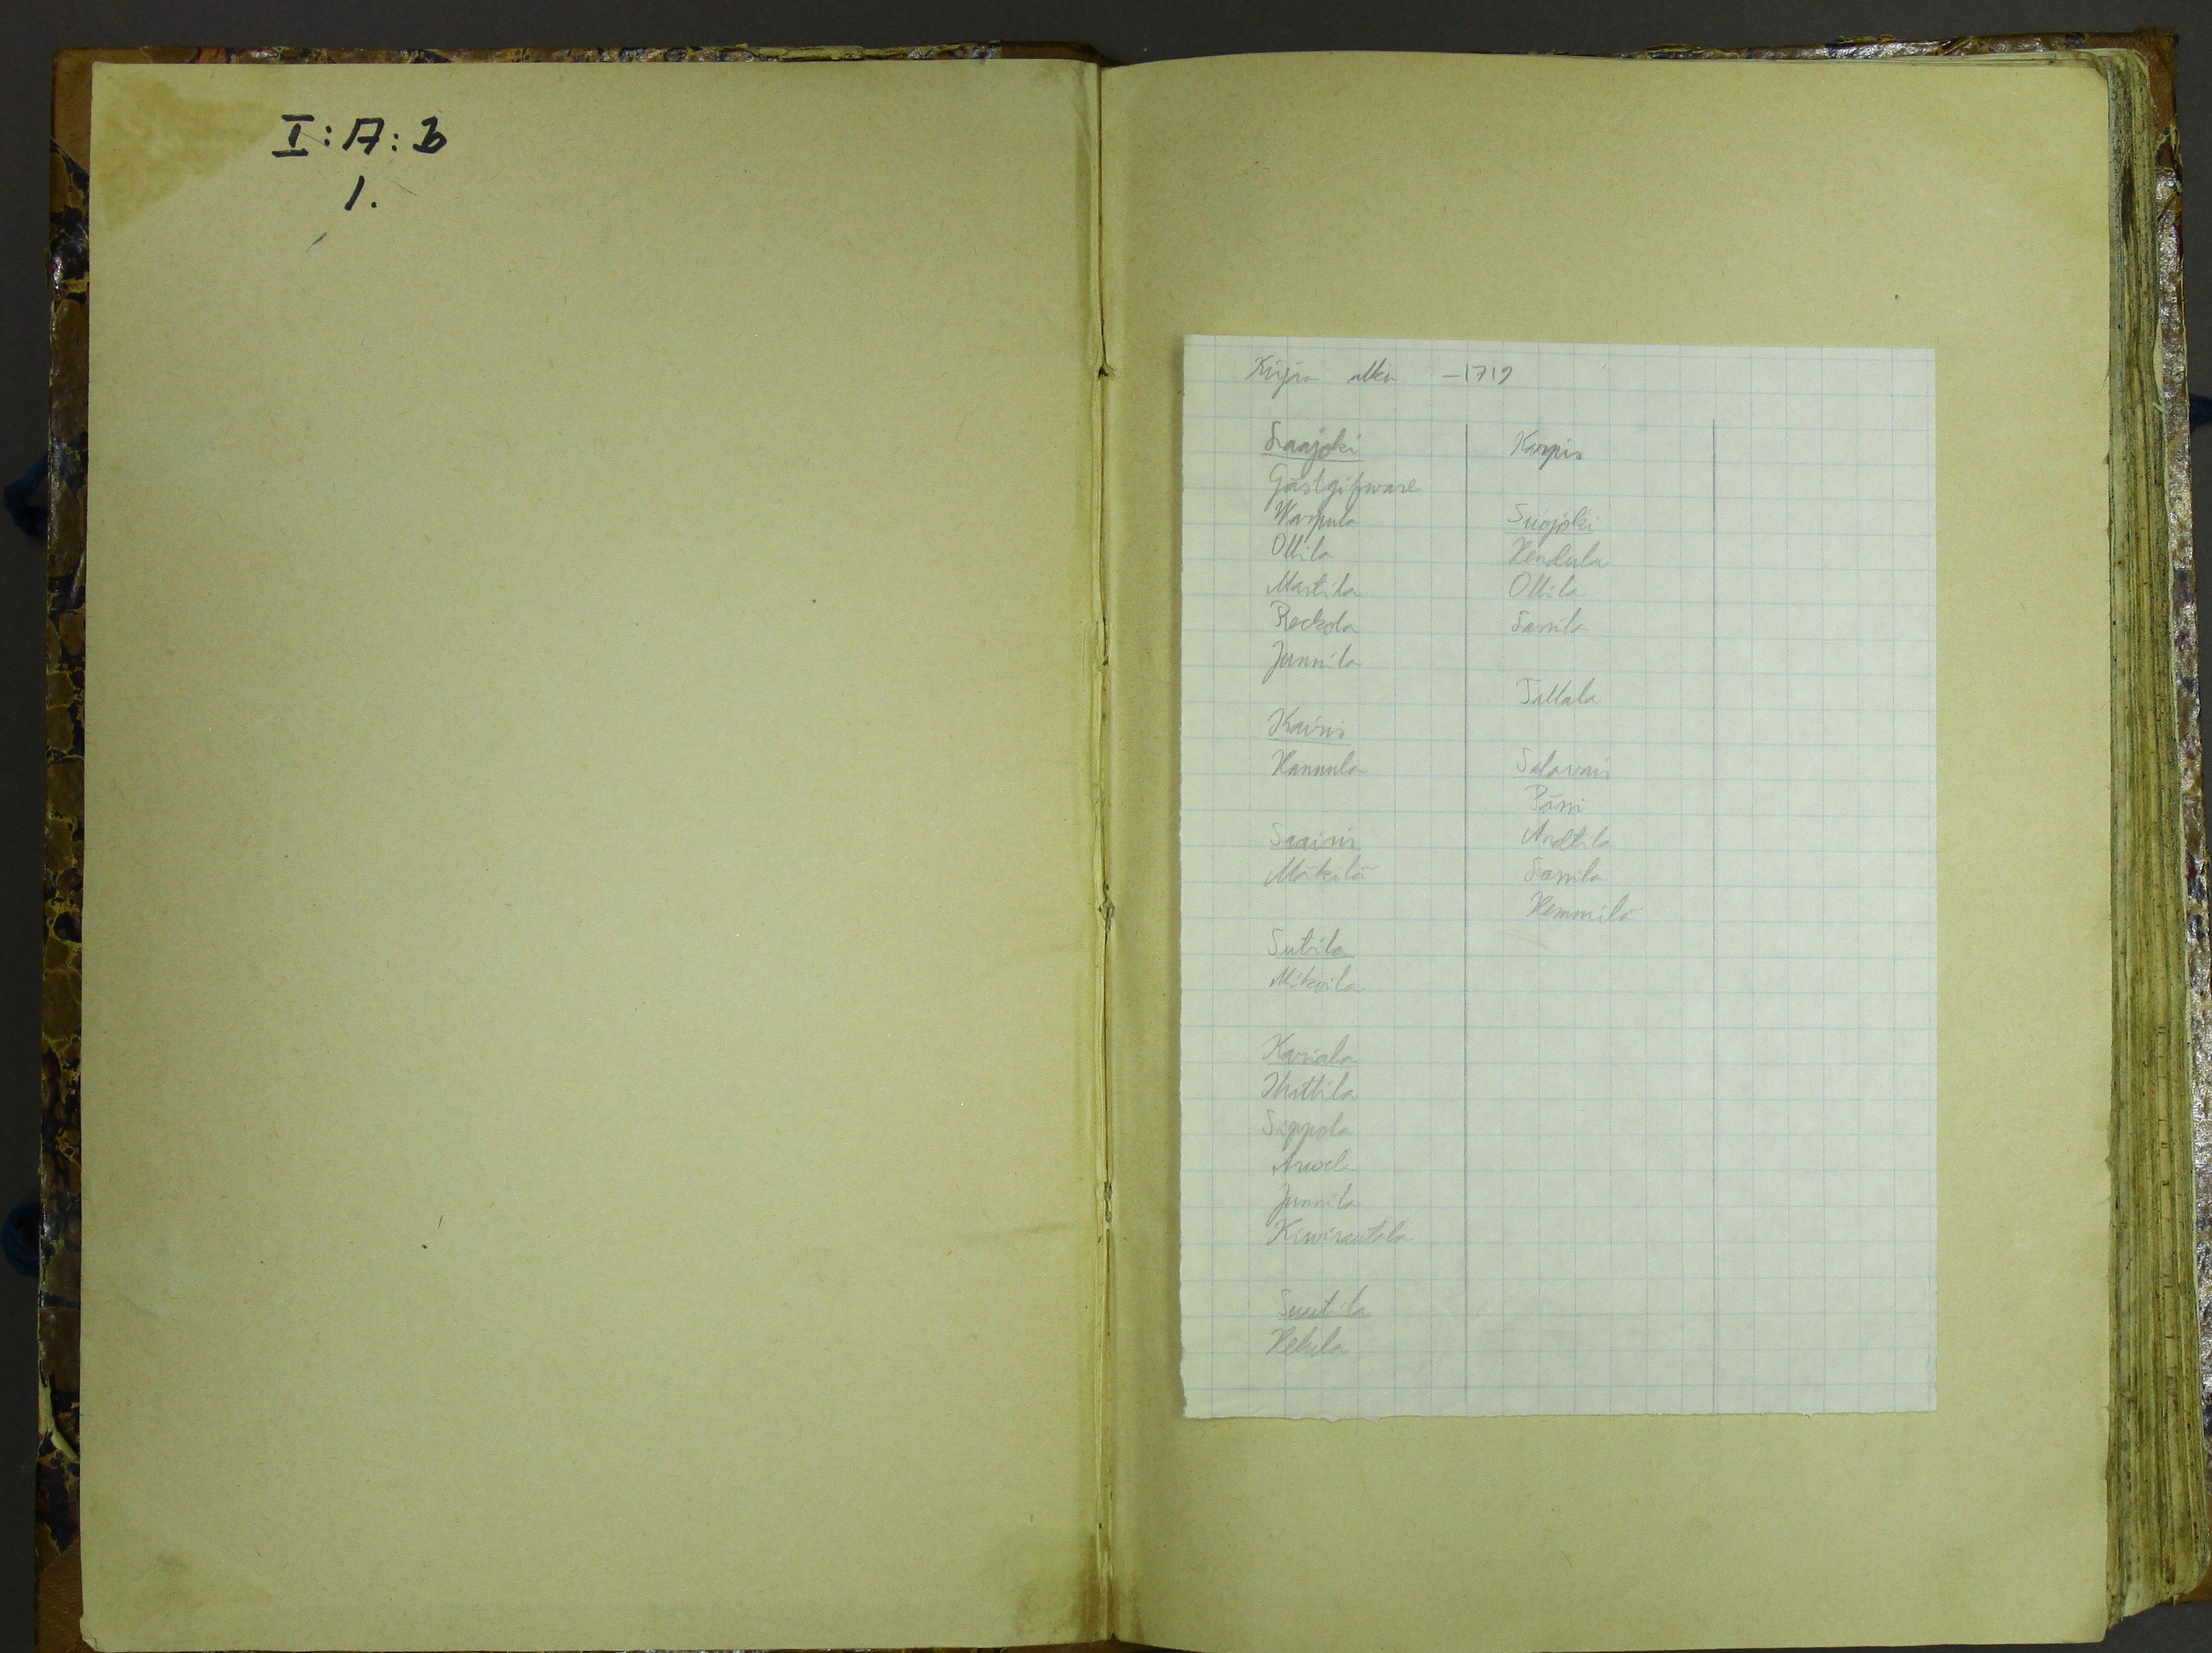 I:A:b
1.
Kirjan alku -1719
Laajoki
Gästgifware
Warpula
Ollila
Martila
Reckola
Junnila
Kaivis
Hannula
Saaivis
Mäkilä
Sutila
Mikoila
Kariala
Huttila
Sippola
Arwela
Junnila
Kiwirautala
Suutila
Hekula
Karpis
Suojoki
Hendula
Ollila
Samila
Tallala
Salavais
Pässi
Andtila
Samila
Hemmilä